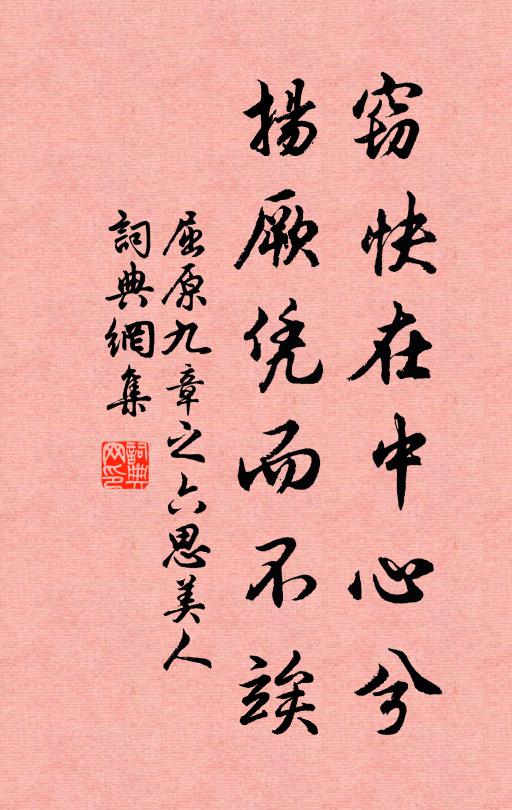 窃快在中心兮
揚厥凭而不竢
屈原九章之六思美人
詞典網集
詞典網印